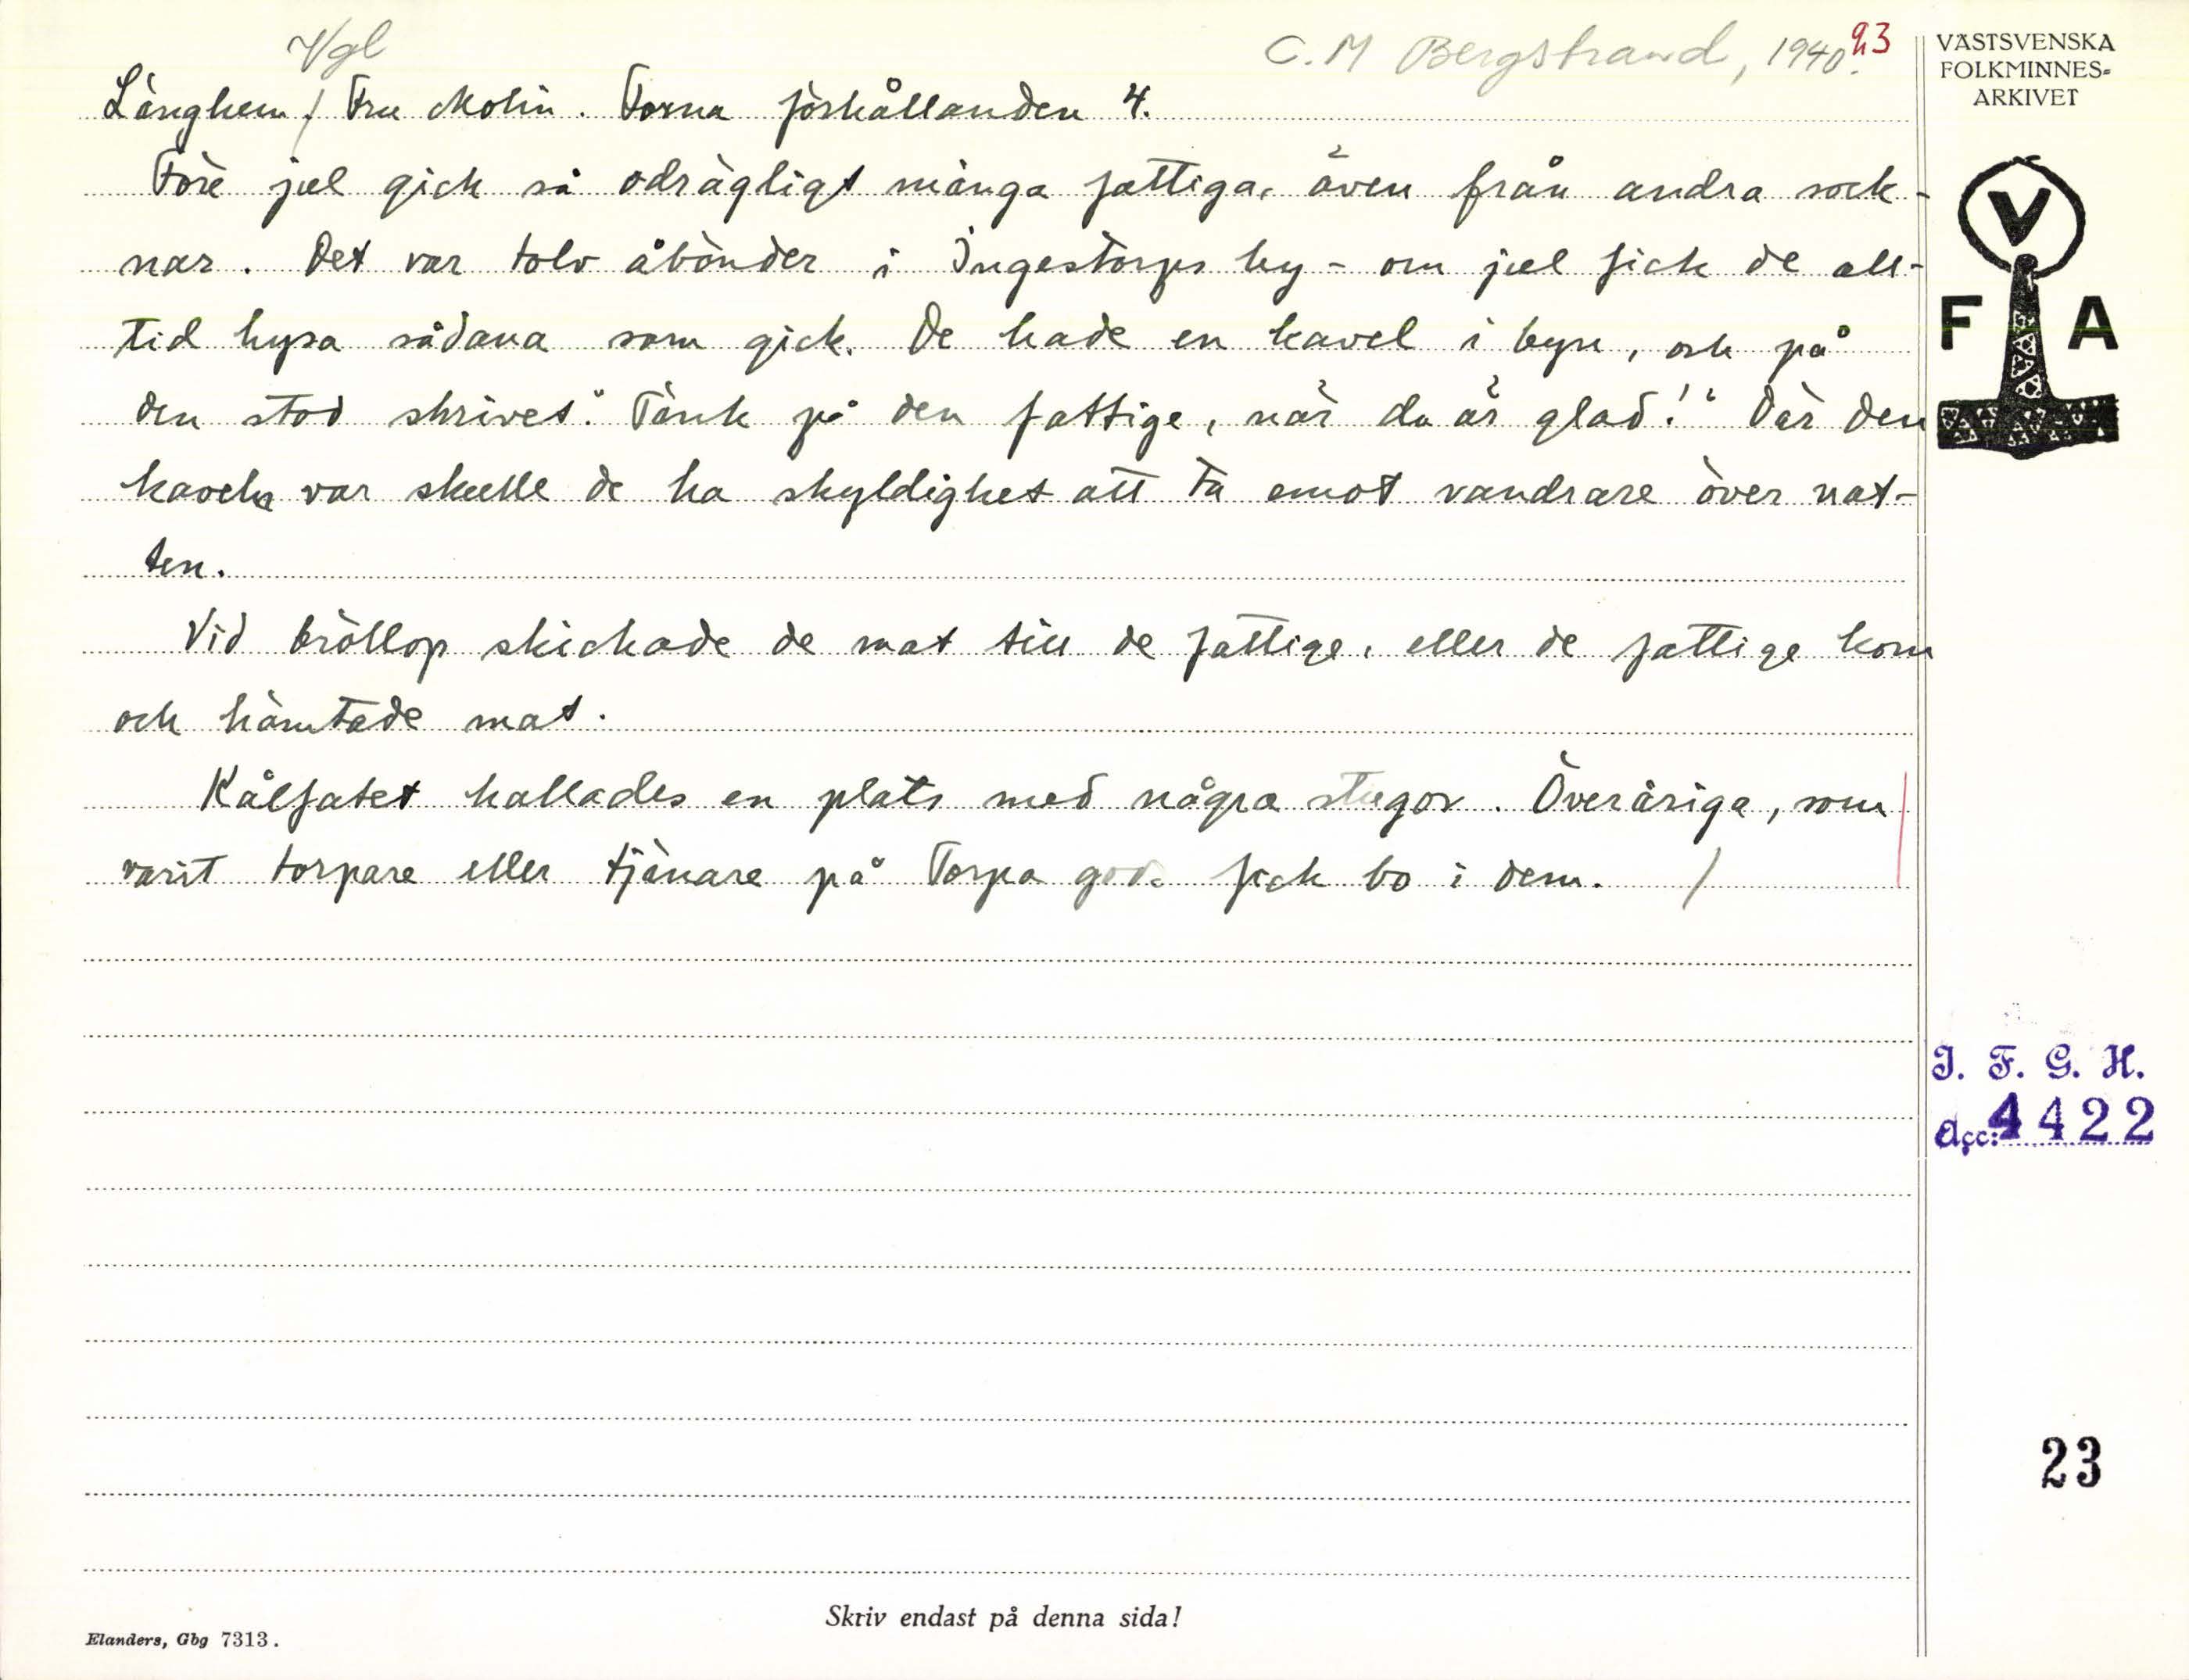 Vgl
C. M Bergstrand, 1940. 93
Länghem / Fru Molin. Forna förhållanden 4.
Före jul gick så odrägligt många fattiga, även från andra sock-
nar. Det var tolv åbönder i Ingestorps by - om jul fick de all-
tid hysa sådana som gick. De hade en kavel i byn, och på
den stod skrivet: "Tänk på den fattige, när du är glad!" Där den
kaveln var skulle de ha skyldighet att ta emot vandrare över nat-
ten.
Vid bröllop skickade de mat till de fattige, eller de fattige kom
och hämtade mat.
Kålfatet kallades en plats med några stugor. Överåriga, som
varit torpare eller tjänare på Torpa god. fick bo i dem. /
VÄSTSVENSKA
FOLKMINNES-
ARKIVET
V
F A
I. F. G. H.
Acc: 4422
23
Skriv endast på denna sida!
Elanders, Gbg 7313.